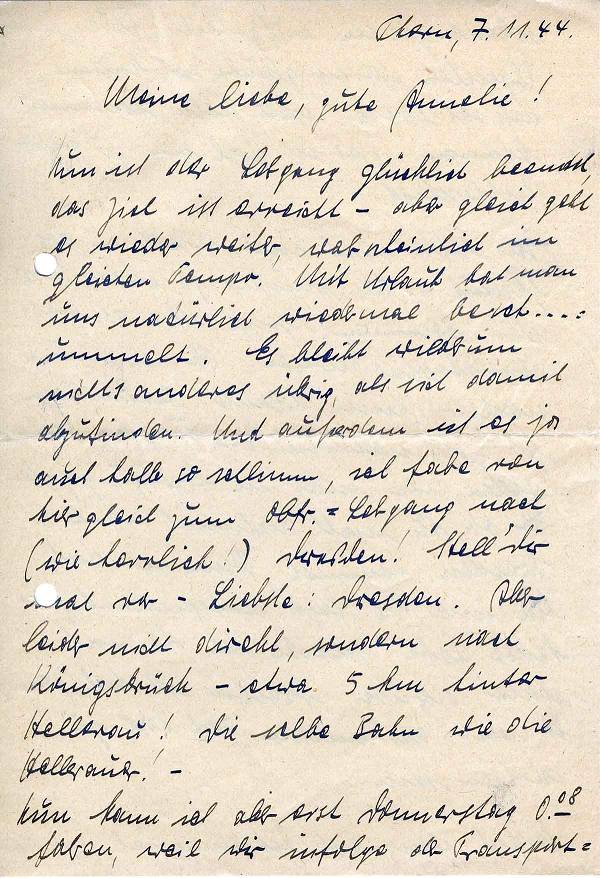 Thorn, 7.11.44.
Meine liebe, gute Annelie!
Nun ist der Lehrgang glücklich beendet,
das Ziel ist erreicht – aber gleich geht
es wieder weiter, wahrscheinlich im
gleichen Tempo. Mit Urlaub hat man
uns natürlich wiedermal besch....=
ummelt. Es bleibt wiederum
nichts anderes übrig, als sich damit
abzufinden. Und außerdem ist es ja
auch halb so schlimm, ich fahre von
hier gleich zum Obfr.=Lehrgang nach
(wie herrlich!) Dresden! Stell' Dir
mal vor – Liebste: Dresden. Aber
leider nicht direkt, sondern nach
Königsbrück – etwa 5 km hinter
Hellerau! Die selbe Bahn wie die
Hellerauer! –
Nun kann ich aber erst Donnerstag 0.08
fahren, weil wir infolge der Transport=